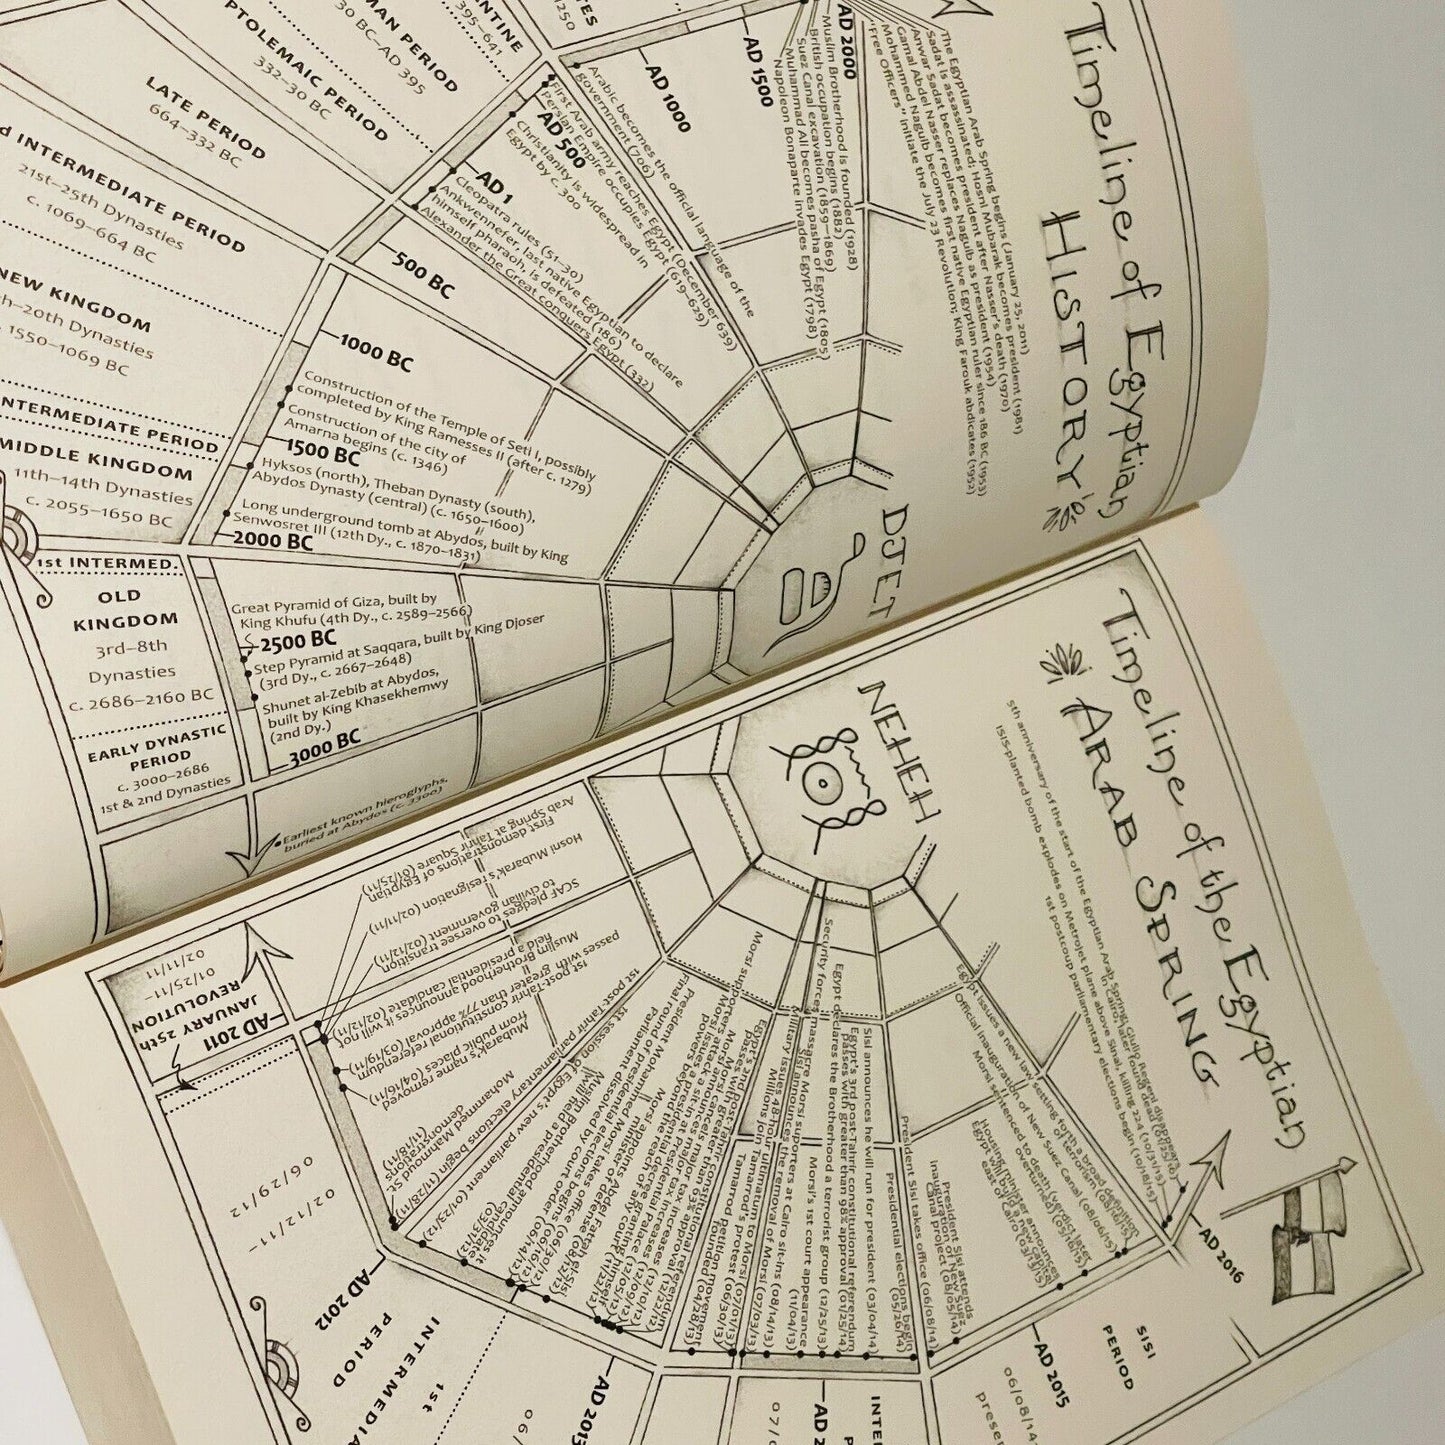 Timeline of Egyptian
HISTORY
DJET
The Egyptian Arab Spring begins (January 25, 2011)
Sadat is assassinated; Hosni Mubarak becomes president (1981)
Anwar Sadat becomes president after Nasser's death (1970)
Gamal Abdel Nasser replaces Naguib as president (1954)
Mohammed Naguib becomes first native Egyptian ruler since 186 BC (1953)
"Free Officers" initiate the July 23 Revolution; King Farouk abdicates (1952)
AD 2000
Muslim Brotherhood is founded (1928)
British occupation begins (1882)
Suez Canal excavation (1859–1869)
Muhammad Ali becomes pasha of Egypt (1805)
Napoleon Bonaparte invades Egypt (1798)
AD 1500
AD 1000
Arabic becomes the official language of the
government (706)
First Arab army reaches Egypt (December 639)
Persian Empire occupies Egypt (619–629)
AD 500
Christianity is widespread in
Egypt by c. 300
AD 1
Cleopatra rules (51–30)
Ankwennefer, last native Egyptian to declare
himself pharaoh, is defeated (186)
Alexander the Great conquers Egypt (332)
500 BC
1000 BC
Construction of the Temple of Seti I, possibly
completed by King Ramesses II (after c. 1279)
Construction of the city of
Amarna begins (c. 1346)
1500 BC
Hyksos (north), Theban Dynasty (south),
Abydos Dynasty (central) (c. 1650–1600)
Long underground tomb at Abydos, built by King
Senwosret III (12th Dy., c. 1870–1831)
2000 BC
Great Pyramid of Giza, built by
King Khufu (4th Dy., c. 2589–2566)
2500 BC
Step Pyramid at Saqqara, built by King Djoser
(3rd Dy., c. 2667–2648)
Shunet al-Zebib at Abydos,
built by King Khasekhemwy
(2nd Dy.)
3000 BC
Earliest known hieroglyphs,
buried at Abydos (c. 3300)
1250
395–641
30 BC–AD 395
PTOLEMAIC PERIOD
332–30 BC
LATE PERIOD
664–332 BC
INTERMEDIATE PERIOD
21st–25th Dynasties
c. 1069–664 BC
NEW KINGDOM
20th Dynasties
1550–1069 BC
INTERMEDIATE PERIOD
MIDDLE KINGDOM
11th–14th Dynasties
c. 2055–1650 BC
1st INTERMED.
OLD
KINGDOM
3rd–8th
Dynasties
c. 2686–2160 BC
EARLY DYNASTIC
PERIOD
c. 3000–2686
1st & 2nd Dynasties
Timeline of the Egyptian
ARAB SPRING
NEHEH
AD 2016
5th anniversary of the start of the Egyptian Arab Spring; Giulio Regeni disappears
in Cairo, later found dead (01/25/16)
ISIS-planted bomb explodes on Metrojet plane above Sinai, killing 224 (10/31/15)
1st postcoup parliamentary elections begin (10/18/15)
Egypt issues a new law setting forth a broad definition
of terrorism (08/16/15)
Official inauguration of New Suez Canal (08/06/15)
Morsi sentenced to death (verdict later
overturned) (05/16/15)
Housing minister announces
Egypt will build a new capital
east of Cairo (03/13/15)
AD 2015
President Sisi attends
inauguration of New Suez
Canal project (08/05/14)
President Sisi takes office (06/08/14)
Presidential elections begin
(05/26/14)
Sisi announces he will run for president (03/04/14)
Egypt's 3rd post-Tahrir constitutional referendum
passes with greater than 98% approval (01/25/14)
Egypt declares the Brotherhood a terrorist group (12/25/13)
Morsi's 1st court appearance
(11/04/13)
Security forces massacre Morsi supporters at Cairo sit-ins (08/14/13)
Sisi announces the removal of Morsi (07/03/13)
Military issues 48-hour ultimatum to Morsi (07/01/13)
Millions join Tamarrod's protest (06/30/13)
Tamarrod petition movement
founded (04/28/13)
Egypt's 2nd post-Tahrir constitutional referendum
passes with greater than 63% approval (12/22/12)
AD 2013
1st session of Egypt's new parliament (01/23/12)
1st post-Tahrir parliamentary elections begin (11/28/11)
AD 2012
Mohammed Mahmoud St.
demonstrations
(11/18/11)
Mubarak's name removed
from public places (04/16/11)
1st post-Tahrir constitutional referendum
passes with greater than 77% approval (03/19/11)
Muslim Brotherhood announces it will not
field a presidential candidate (02/12/11)
SCAF pledges to oversee transition
to civilian government (02/12/11)
Hosni Mubarak's resignation (02/11/11)
First demonstrations of Egyptian
Arab Spring at Tahrir Square (01/25/11)
AD 2011
JANUARY 25th
REVOLUTION
01/25/11–
02/11/11
02/12/11–
06/29/12
1st
PERIOD
SISI
PERIOD
06/08/14